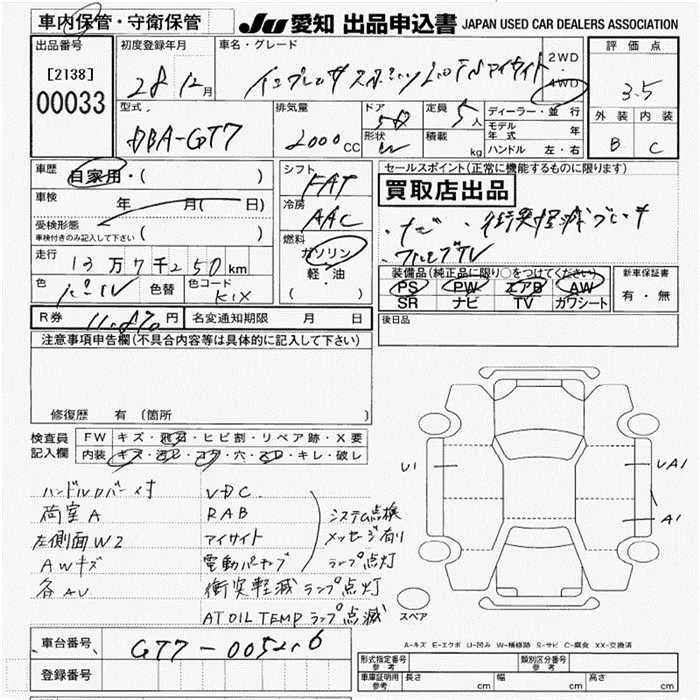 車内保管・守衛保管
JU 愛知 出品申込書 JAPAN USED CAR DEALERS ASSOCIATION
出品番号
[2138]
00033
初度登録年月
28年12月
車名・グレード
インプレッサ スポーツ 2.0 アイサイト
2WD
・
4WD
評価点
3.5
外装 内装
B C
型式
DBA-GT7
排気量
2000CC
ドア
5D
形状
W
定員
5人
積載
kg
ディーラー・並行
モデル年式 年
ハンドル 左・右
車歴
自家用・( )
車検
年 月( 日)
受検形態
車検付きのみ記入して下さい ( )
走行
13万7千250km
色
パール
色替
色コード
K1X
シフト
FAT
冷房
AAC
燃料
ガソリン
軽・油
( )
セールスポイント(正常に機能するものに限ります)
買取店出品
・ナビ ・衝突軽減ブレーキ
・フルセグTV
装備品(純正品に限り○をつけてください)
PS PW エアB AW
SR ナビ TV カワシート
新車保証書
有・無
R券 円
名変通知期限 月 日
後日品
注意事項申告欄(不具合内容等は具体的に記入して下さい)
修復歴 有 (箇所
検査員記入欄
FW キズ・飛石・ヒビ割・リペア跡・X要
内装 キズ・汚レ・コゲ・穴・スレ・キレ・破レ
ハンドルカバー付 VDC
荷室A RAB システム点検
左側面W2 アイサイト メッセージ有り
AWキズ 電動パーキング ランプ点灯
各AU 衝突軽減ランプ点灯
AT OIL TEMP ランプ点滅
U1
UA1
A1
スペア
A-キズ E-エクボ U-凹み W-補修跡 S-サビ C-腐食 XX-交換済
車台番号
登録番号
形式指定番号 参考
類別区分番号 参考
車庫証明用 参考
長さ cm
幅 cm
高さ cm